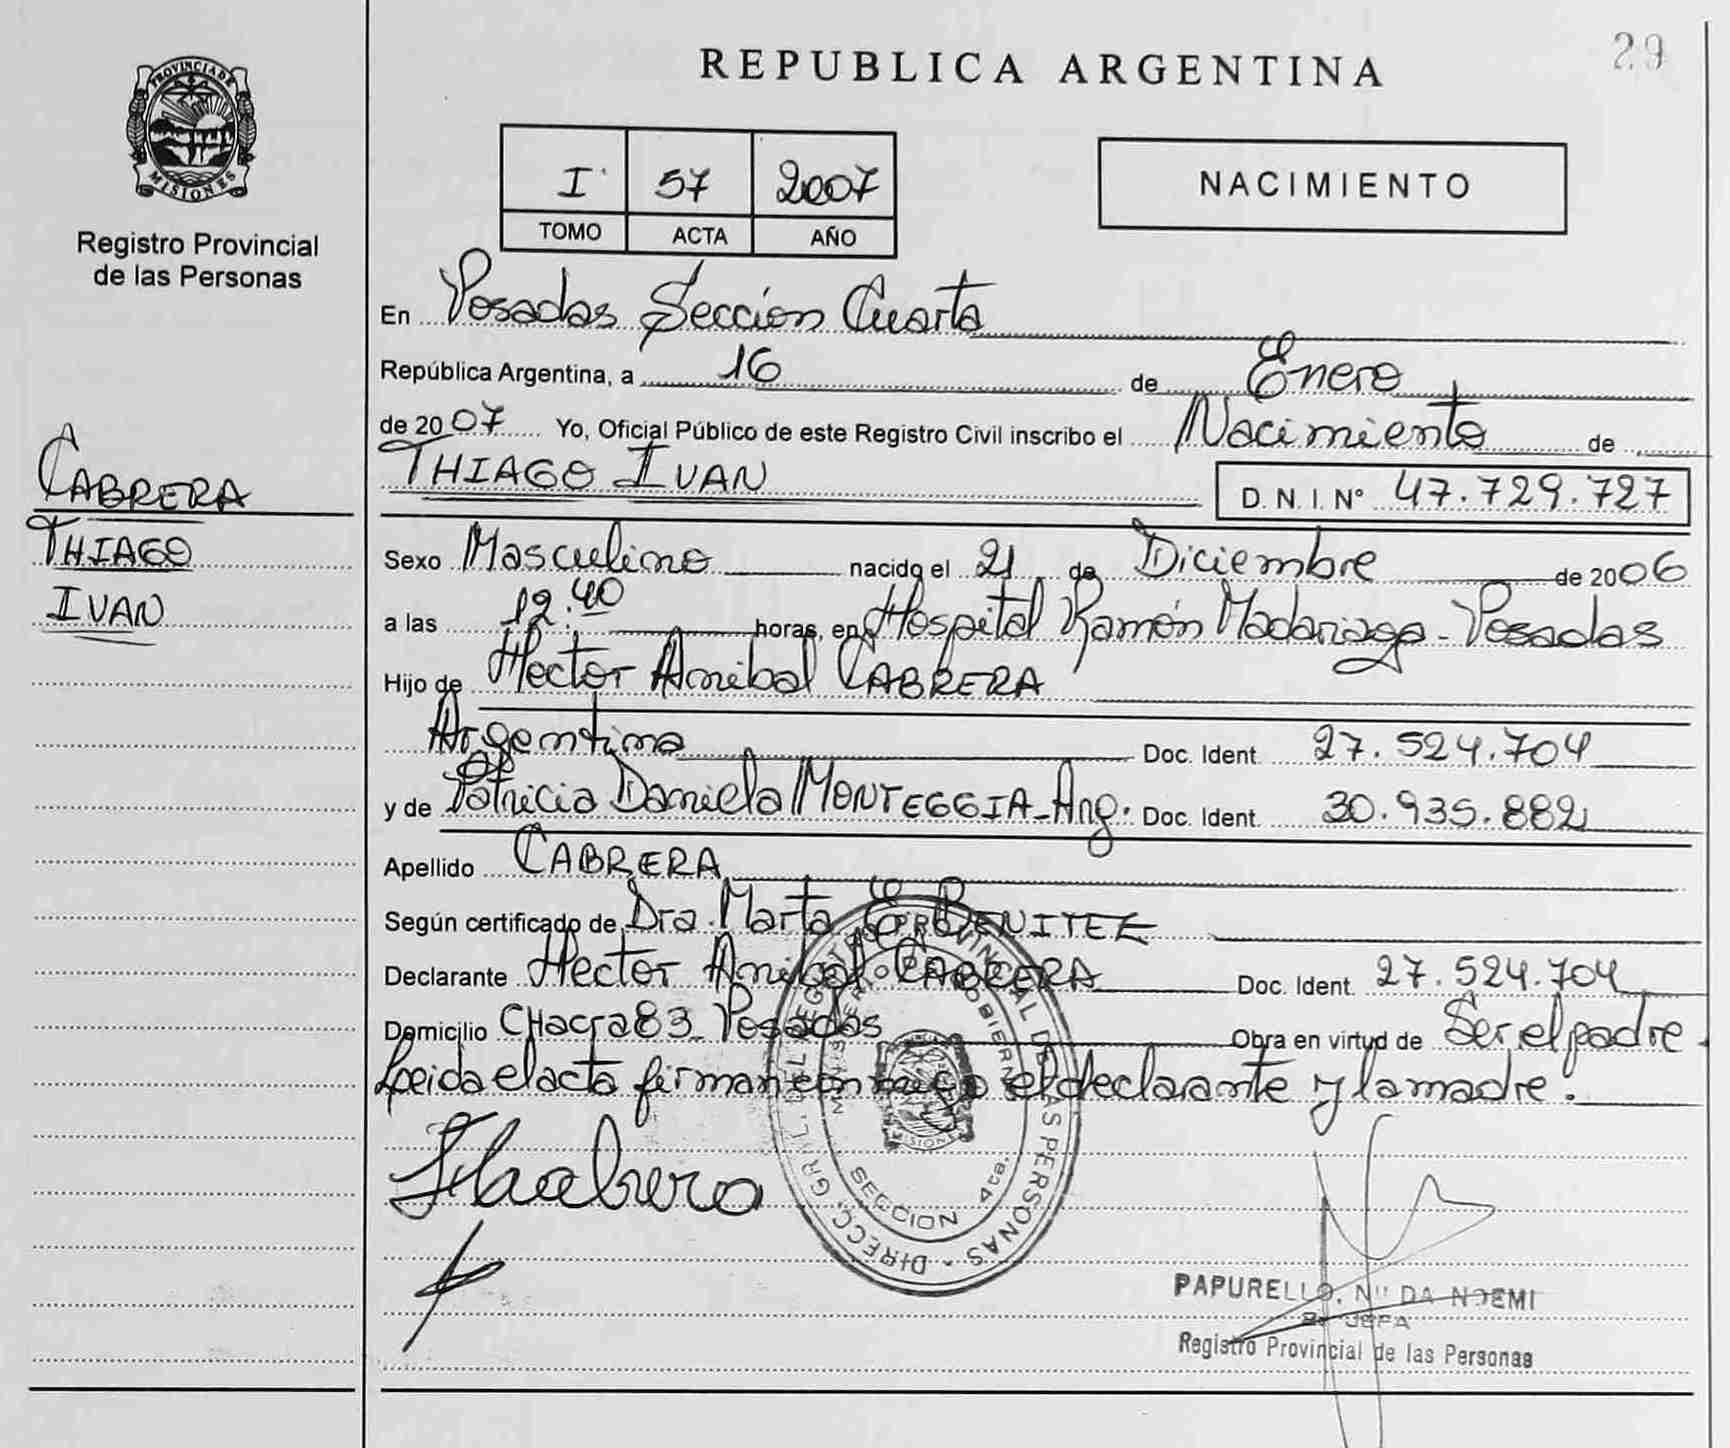 PROVINCIA DE
MISIONES
Registro Provincial
de las Personas
CABRERA
THIAGO
IVAN
29
REPUBLICA ARGENTINA
I 57 2007
TOMO ACTA AÑO
NACIMIENTO
En Posadas Sección Cuarta
República Argentina, a 16 de Enero
de 2007 Yo, Oficial Público de este Registro Civil inscribo el Nacimiento de
THIAGO IVAN D. N. I. Nº 47.729.727
Sexo Masculino nacido el 21 de Diciembre de 2006
a las 12.40 horas, en Hospital Ramón Madariaga - Posadas
Hijo de Hector Anibal CABRERA
Argentino Doc. Ident. 27.524.704
y de Patricia Daniela MONTEGGIA - Arg. Doc. Ident. 30.935.882
Apellido CABRERA
Según certificado de Dra. Marta E. BENITEZ
Declarante Hector Anibal CABRERA Doc. Ident. 27.524.704
Domicilio CHacra 83 - Posadas Obra en virtud de Ser el padre.
Leida el acta firman conmigo el declarante y la madre.
DIRECC. GRAL. DEL REGISTRO PROVINCIAL DE LAS PERSONAS
MINISTERIO DE GOBIERNO
MISIONES
SECCION 4ta.
PAPURELLO, NOEMI
JEFA
Registro Provincial de las Personas